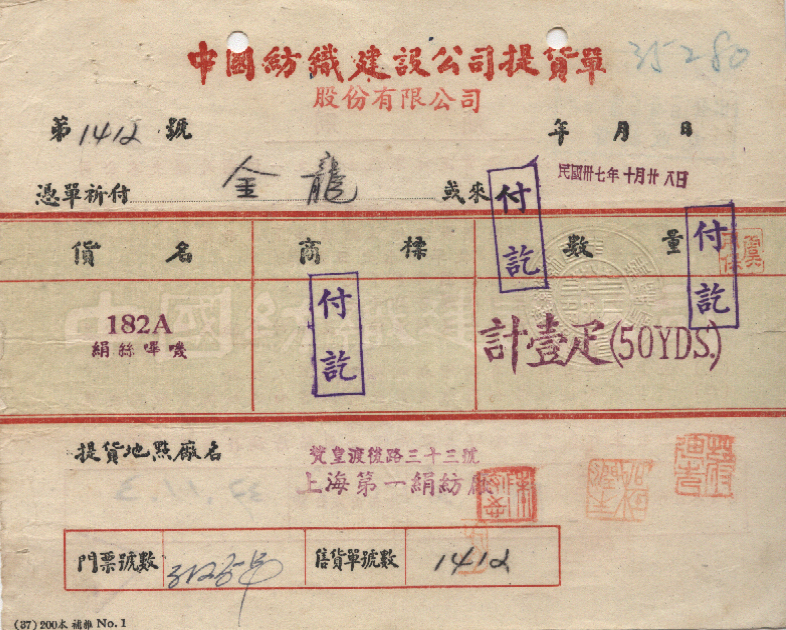 中國紡織建設公司提貨單
35280
股份有限公司
第1412號
年 月 日
民國卅七年十月廿八日
憑單祈付 金龍 或來
付訖
付訖
貨名 商標 數量
付訖
182A
絹絲嗶嘰
計壹疋(50YDS.)
提貨地點廠名
上海第一絹紡廠
門票號數
售貨單號數 1412
(37)200本 補雜 No. 1